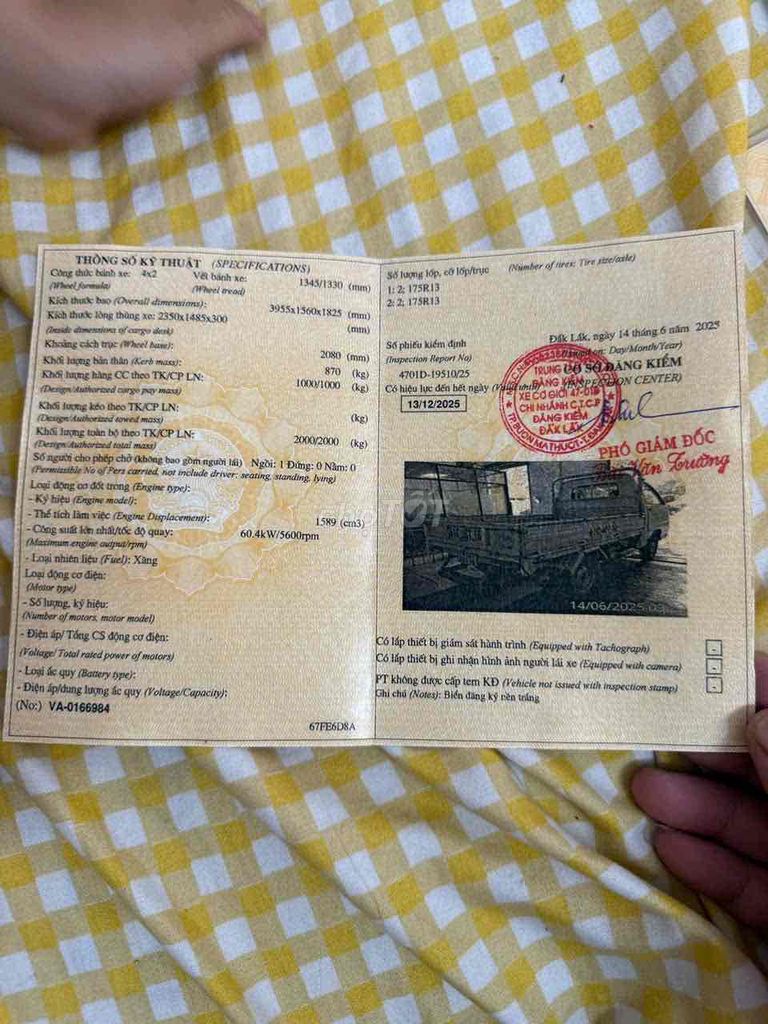 THÔNG SỐ KỸ THUẬT (SPECIFICATIONS)
Công thức bánh xe: 4x2 Vết bánh xe: 1345/1330 (mm)
(Wheel formula) (Wheel tread)
Kích thước bao (Overall dimensions): 3955x1560x1825 (mm)
Kích thước lòng thùng xe: 2350x1485x300 (mm)
(Inside dimensions of cargo desk)
Khoảng cách trục (Wheel base): 2080 (mm)
Khối lượng bản thân (Kerb mass): 870 (kg)
Khối lượng hàng CC theo TK/CP LN: 1000/1000 (kg)
(Design/Authorized cargo pay mass)
Khối lượng kéo theo TK/CP LN: (kg)
(Design/Authorized towed mass)
Khối lượng toàn bộ theo TK/CP LN: 2000/2000 (kg)
(Design/Authorized total mass)
Số người cho phép chở (không bao gồm người lái) Ngồi: 1 Đứng: 0 Nằm: 0
(Permissible No of Pers carried, not include driver: seating, standing, lying)
Loại động cơ đốt trong (Engine type):
- Ký hiệu (Engine model):
- Thể tích làm việc (Engine Displacement): 1589 (cm3)
- Công suất lớn nhất/tốc độ quay: 60.4kW/5600rpm
(Maximum engine output/rpm)
- Loại nhiên liệu (Fuel): Xăng
Loại động cơ điện:
(Motor type)
- Số lượng, ký hiệu:
(Number of motors, motor model)
- Điện áp/ Tổng CS động cơ điện:
(Voltage/ Total rated power of motors)
- Loại ắc quy (Battery type):
- Điện áp/dung lượng ắc quy (Voltage/Capacity):
(No:) VA-0166984
67FE6D8A
Số lượng lốp, cỡ lốp/trục (Number of tires: Tire size/axle)
1: 2; 175R13
2: 2; 175R13
Số phiếu kiểm định
(Inspection Report No)
4701D-19510/25
Có hiệu lực đến hết ngày
13/12/2025
Đắk Lắk, ngày 14 tháng 6 năm 2025
Day/Month/Year)
CƠ SỞ ĐĂNG KIỂM
(INSPECTION CENTER)
TRUNG
ĐĂNG KIỂM
XE CƠ GIỚI 47-01D
CHI NHÁNH C.T.C.P
ĐĂNG KIỂM
ĐẮK LẮK
TP.BUÔN MA THUỘT
PHÓ GIÁM ĐỐC
Văn Trường
chợ TỐT
14/06/2025
Có lắp thiết bị giám sát hành trình (Equipped with Tachograph) -
Có lắp thiết bị ghi nhận hình ảnh người lái xe (Equipped with camera) -
PT không được cấp tem KĐ (Vehicle not issued with inspection stamp) -
Ghi chú (Notes): Biển đăng ký nền trắng